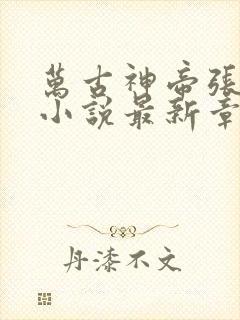 萬古神帝張
小說最新章
丹漆不文